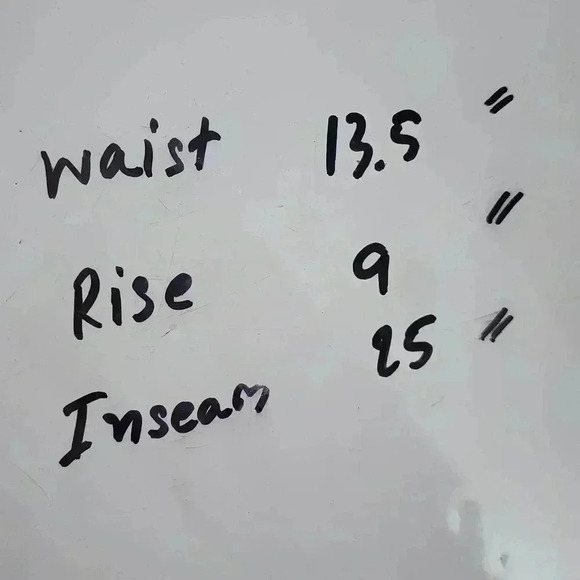 Waist 13.5 "
Rise 9 "
Inseam 25 "